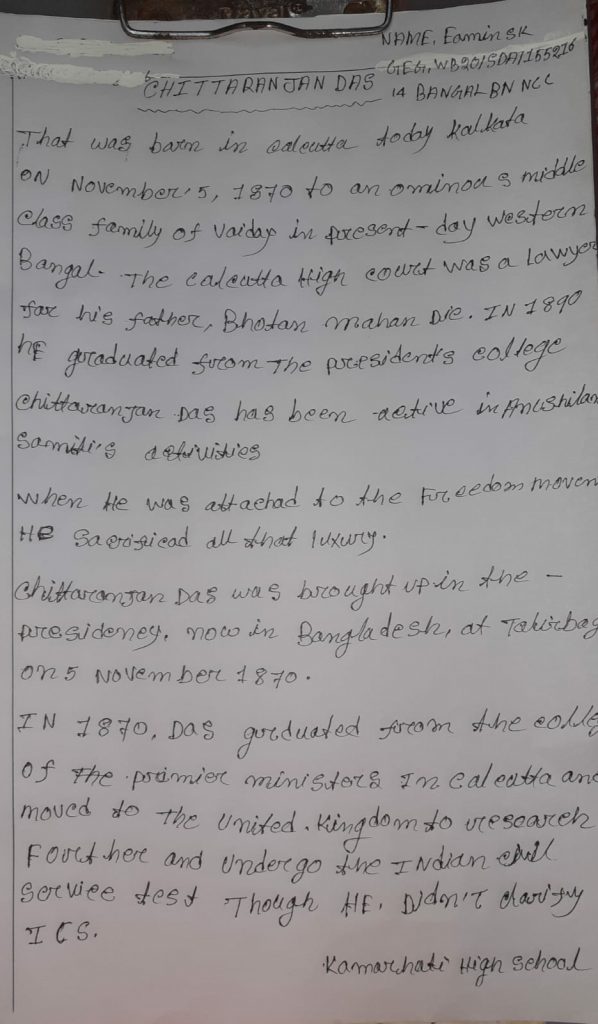 NAME, Eamin SK
GEG, WB20ISDA1155216
CHITTARANJAN DAS
14 BANGAL BN NCC
That was barn in calcutta today Kalkata
ON November, 5, 1870 to an ominous middle
class family of Vaiday in present-day western
Bangal. The calcutta High court was a Lawyer
for his father, Bhotan mahan Die. IN 1890
he graduated from The president's college
Chittaranjan Das has been active in Anushilan
Samiti's activities
When He was attachad to the Freedom movem
He sacrificad all that luxury.
Chittaranjan Das was brought up in the -
presidency, now in Bangladesh, at Takirbag
on 5 November 1870.
IN 1870, Das grduated from the colle
Of The primier ministers In calcatta and
moved to The United. Kingdom to research
Fourther and Undergo the Indian civil
service test Though HE. Didn't clarify
ICS.
Kamarhati High School